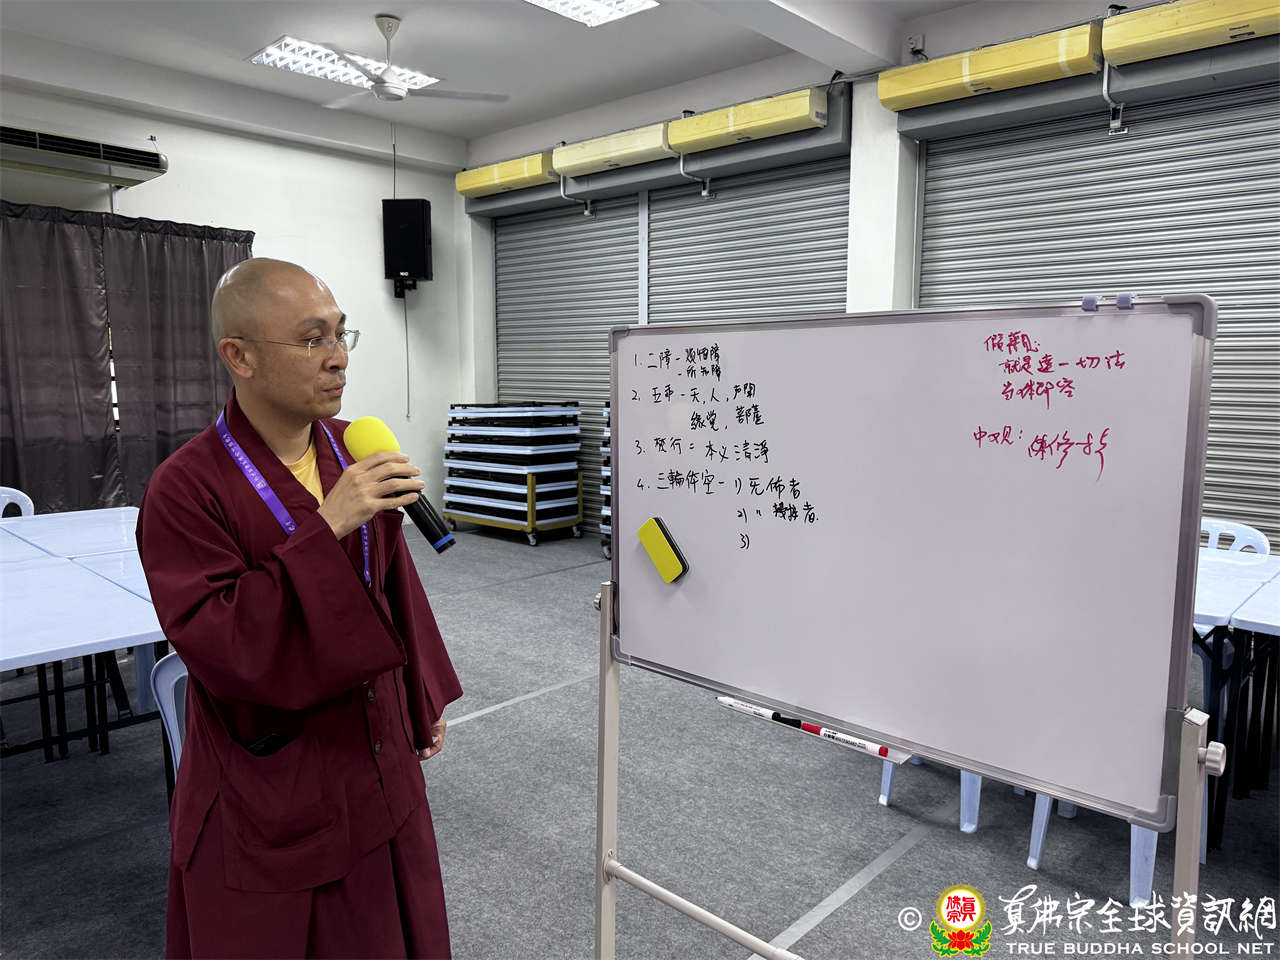 1. 二障 - 煩惱障
- 所知障
2. 五乘 - 天, 人, 声聞
缘觉, 菩薩
3. 梵行 = 本必清淨
4. 三輪体空 - 1) 无佈者
2) 〃 接受者.
3)
假藥觀:
就是這一切法
当体即空
中观:
© 真佛宗全球資訊網
TRUE BUDDHA SCHOOL NET